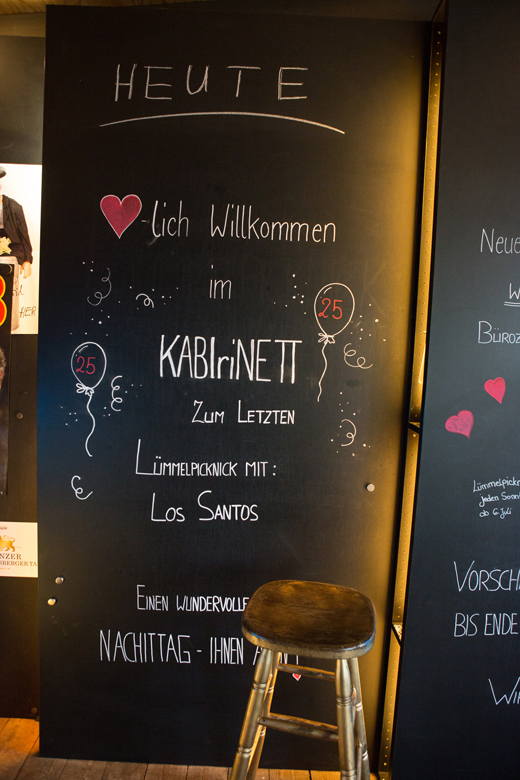 HEUTE
-lich Willkommen
im
25
KABIriNETT
25
ZUM LETZTEN
LÜMMELPICKNICK MIT:
LOS SANTOS
EINEN WUNDERVOLLE
NACHITTAG - IHNEN
Neue
BÜROZ
Lümmelpickn
jeden Sonn
ab 6. Juli
VORSCH
BIS ENDE
WI
HER
NZER
SBERGER TA